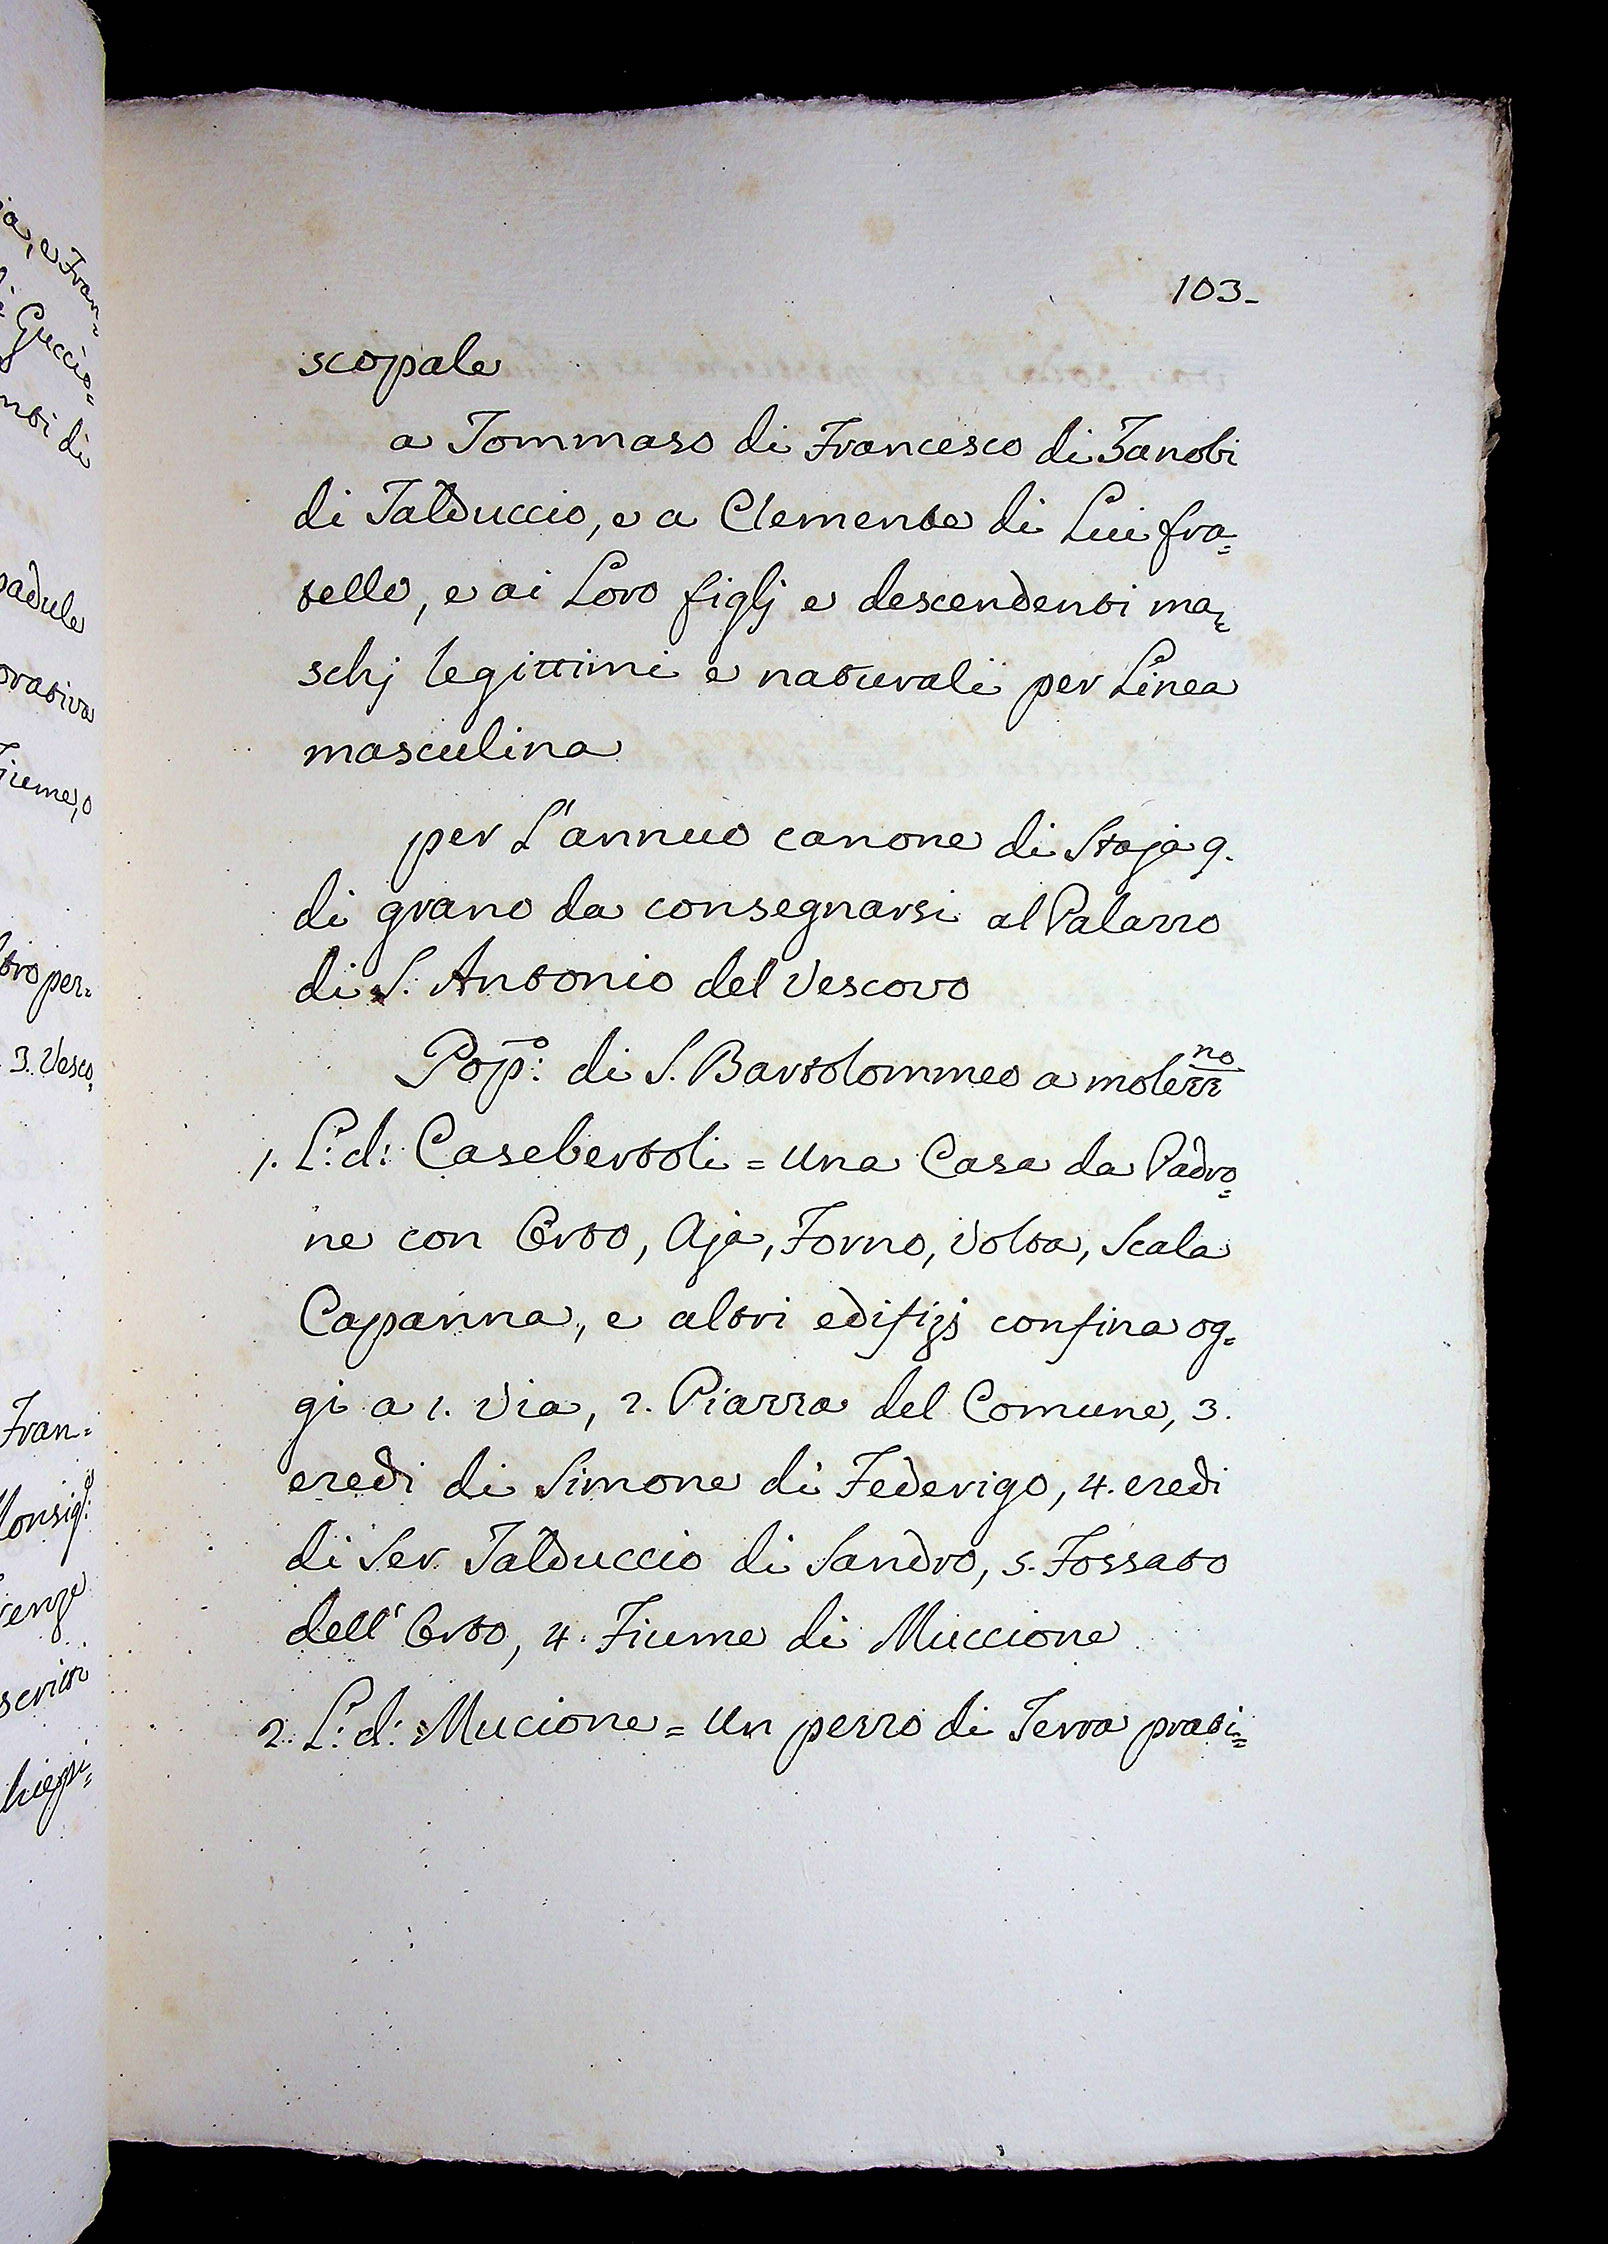 ia, e Fran=
Guccio=
nti di
padule
orativa
Fiume, o
tro per=
3. Vesco=
Fran=
Monsig:e
renze
scritti
hiepi=
103_
scopale
a Tommaso di Francesco di Zanobi
di Talduccio, e a Clemente di Lui fra=
tello, e ai Loro figlj e descendenti ma=
schj legittimi e naturali per Linea
masculina
per L'annuo canone di Staja 9.
di grano da consegnarsi al Palazzo
di S. Antonio del Vescovo
Popo: di S. Bartolommeo a molezzno
1. L: d: Casebertoli = una Casa da Padro=
ne con Orto, Aja, Forno, Volta, Scala
Capanna, e altri edifizj confina og=
gi a 1. Via, 2. Piazza del Comune, 3.
eredi di Simone di Federigo, 4. eredi
di Ser Talduccio di Sandro, 5. Fossato
dell' Orto, 4. Fiume di Muccione
2. L: d: Mucione = un pezzo di Terra prati=